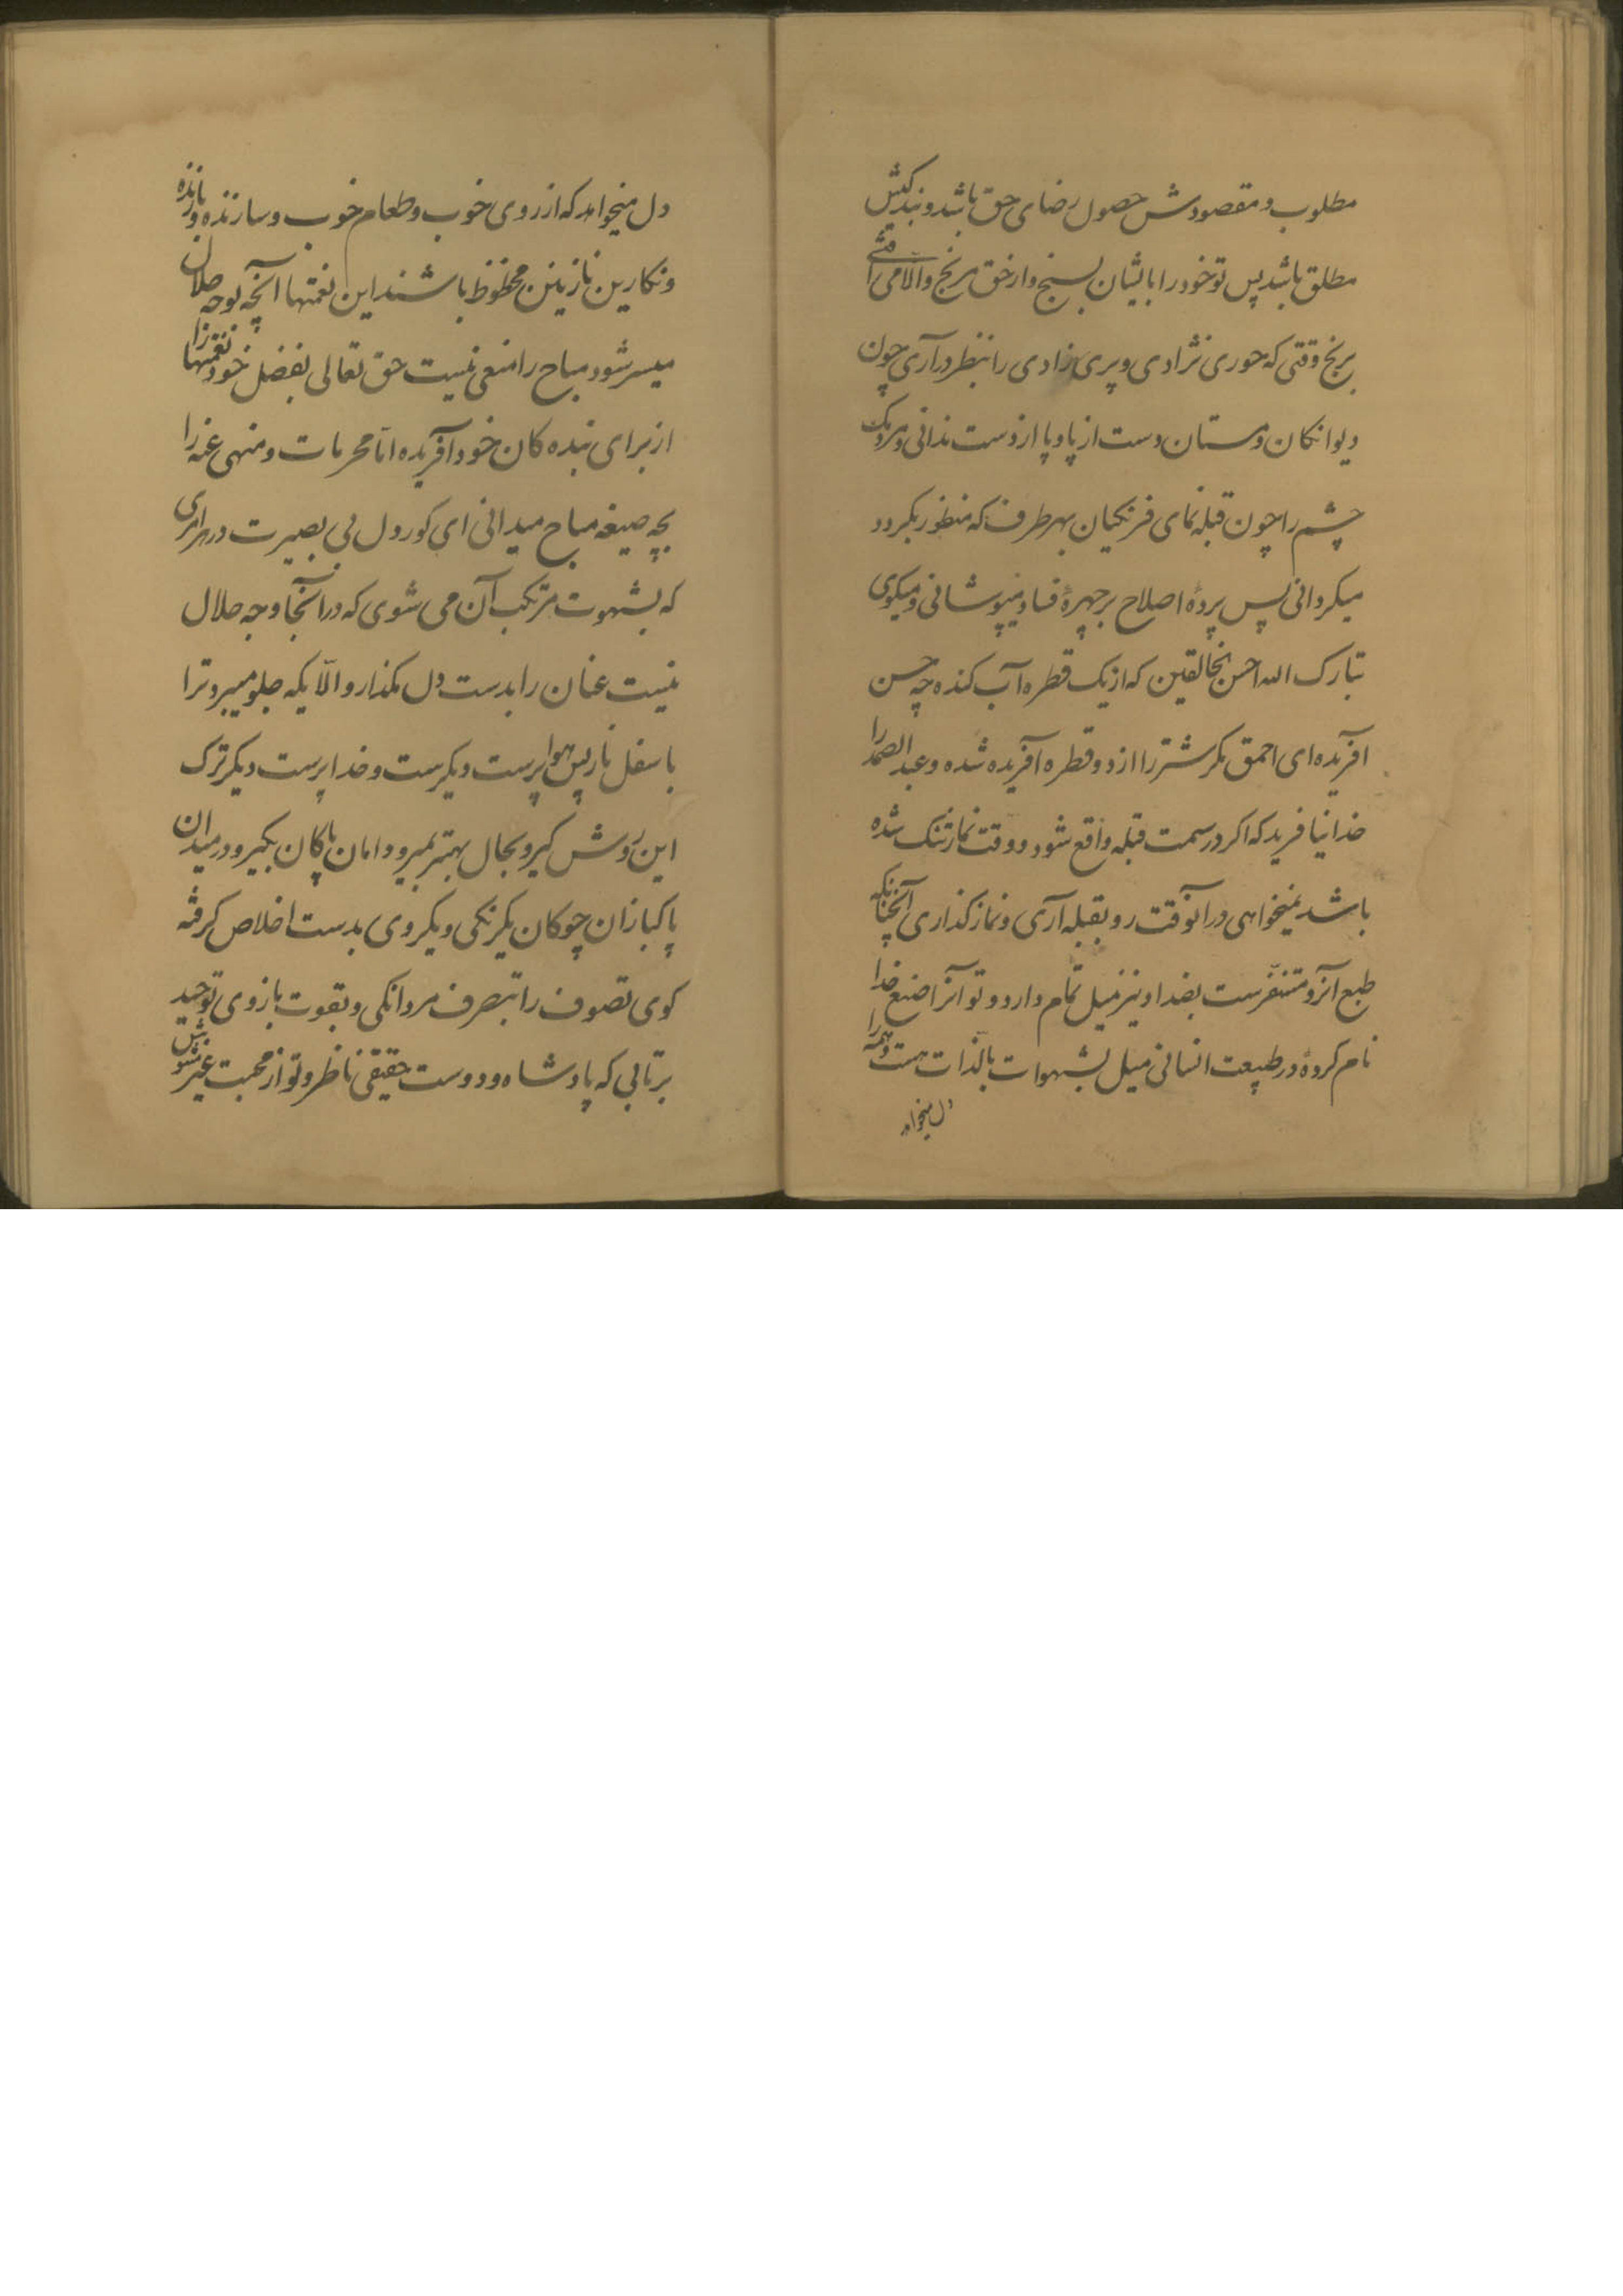 مطلوب و مقصودش حصول رضای حق باشد و بندکیش
مطلق باشد پس تو خود را با ایشان بسنج و از حق مرنج و الا می
برنج وقتی که حوری نژادی و پری زادی را بنظر درآری چون
دیوانکان و مستان دست از پا و پا از دست ندانی و مردمک
چشم را چون قبله نمای فرنکیان بهر طرف که منظور بکردد
میکردانی پس پردهٔ اصلاح بر چهرهٔ فساد میپوشانی و میکوی
تبارک الله احسن الخالقین که از یک قطره آب کنده چه حسن
آفریده ای احمق مکر شتر را از دو قطره آفریده شده و عبدالصمد را
خدا نیافرید که اکر در سمت قبله واقع شود و وقت نماز تنک شده
باشد نمیخواهی در آنوقت رو بقبله آری و نماز کذاری آنچنانکه
طبع از او متنفرست بضد او نیز میل تمام دارد و تو آنرا صنع خدا
نام کردهٔ در طبیعت انسانی میل بشهوات بالذات هست و همه را
دل میخواهد
دل میخواهد که از روی خوب و طعام خوب و سازنده و بازنده
و نکارین نازینن محظوظ باشند این نعمتها آنچه بوجه حلال
میسر شود مباح را منعی نیست حق تعالی بفضل خود نعمتها را
از برای بنده کان خود آفریده اما محرمات و منهی عنه را
بچه صیغه مباح میدانی ای کور دل بی بصیرت در هر امری
که بشهوت مرتکب آن می شوی که در آنجا وجه حلال
نیست عنان را بدست دل مکذار و الا یکه جلو میبرد ترا
باسفل نار پس هوا پرست دیکرست و خدا پرست دیکر ترک
این روش کیر و بحال بهتر بمیر و دامان پاکان بکیر و در میدان
پاکبازان چوکان یکرنکی و یکروی بدست اخلاص کرفته
کوی تصوف را بتصرف مردانکی و بقوت بازوی توحید
برتابی که پادشاه و دوست حقیقی ناظر و تو از محبت غیر